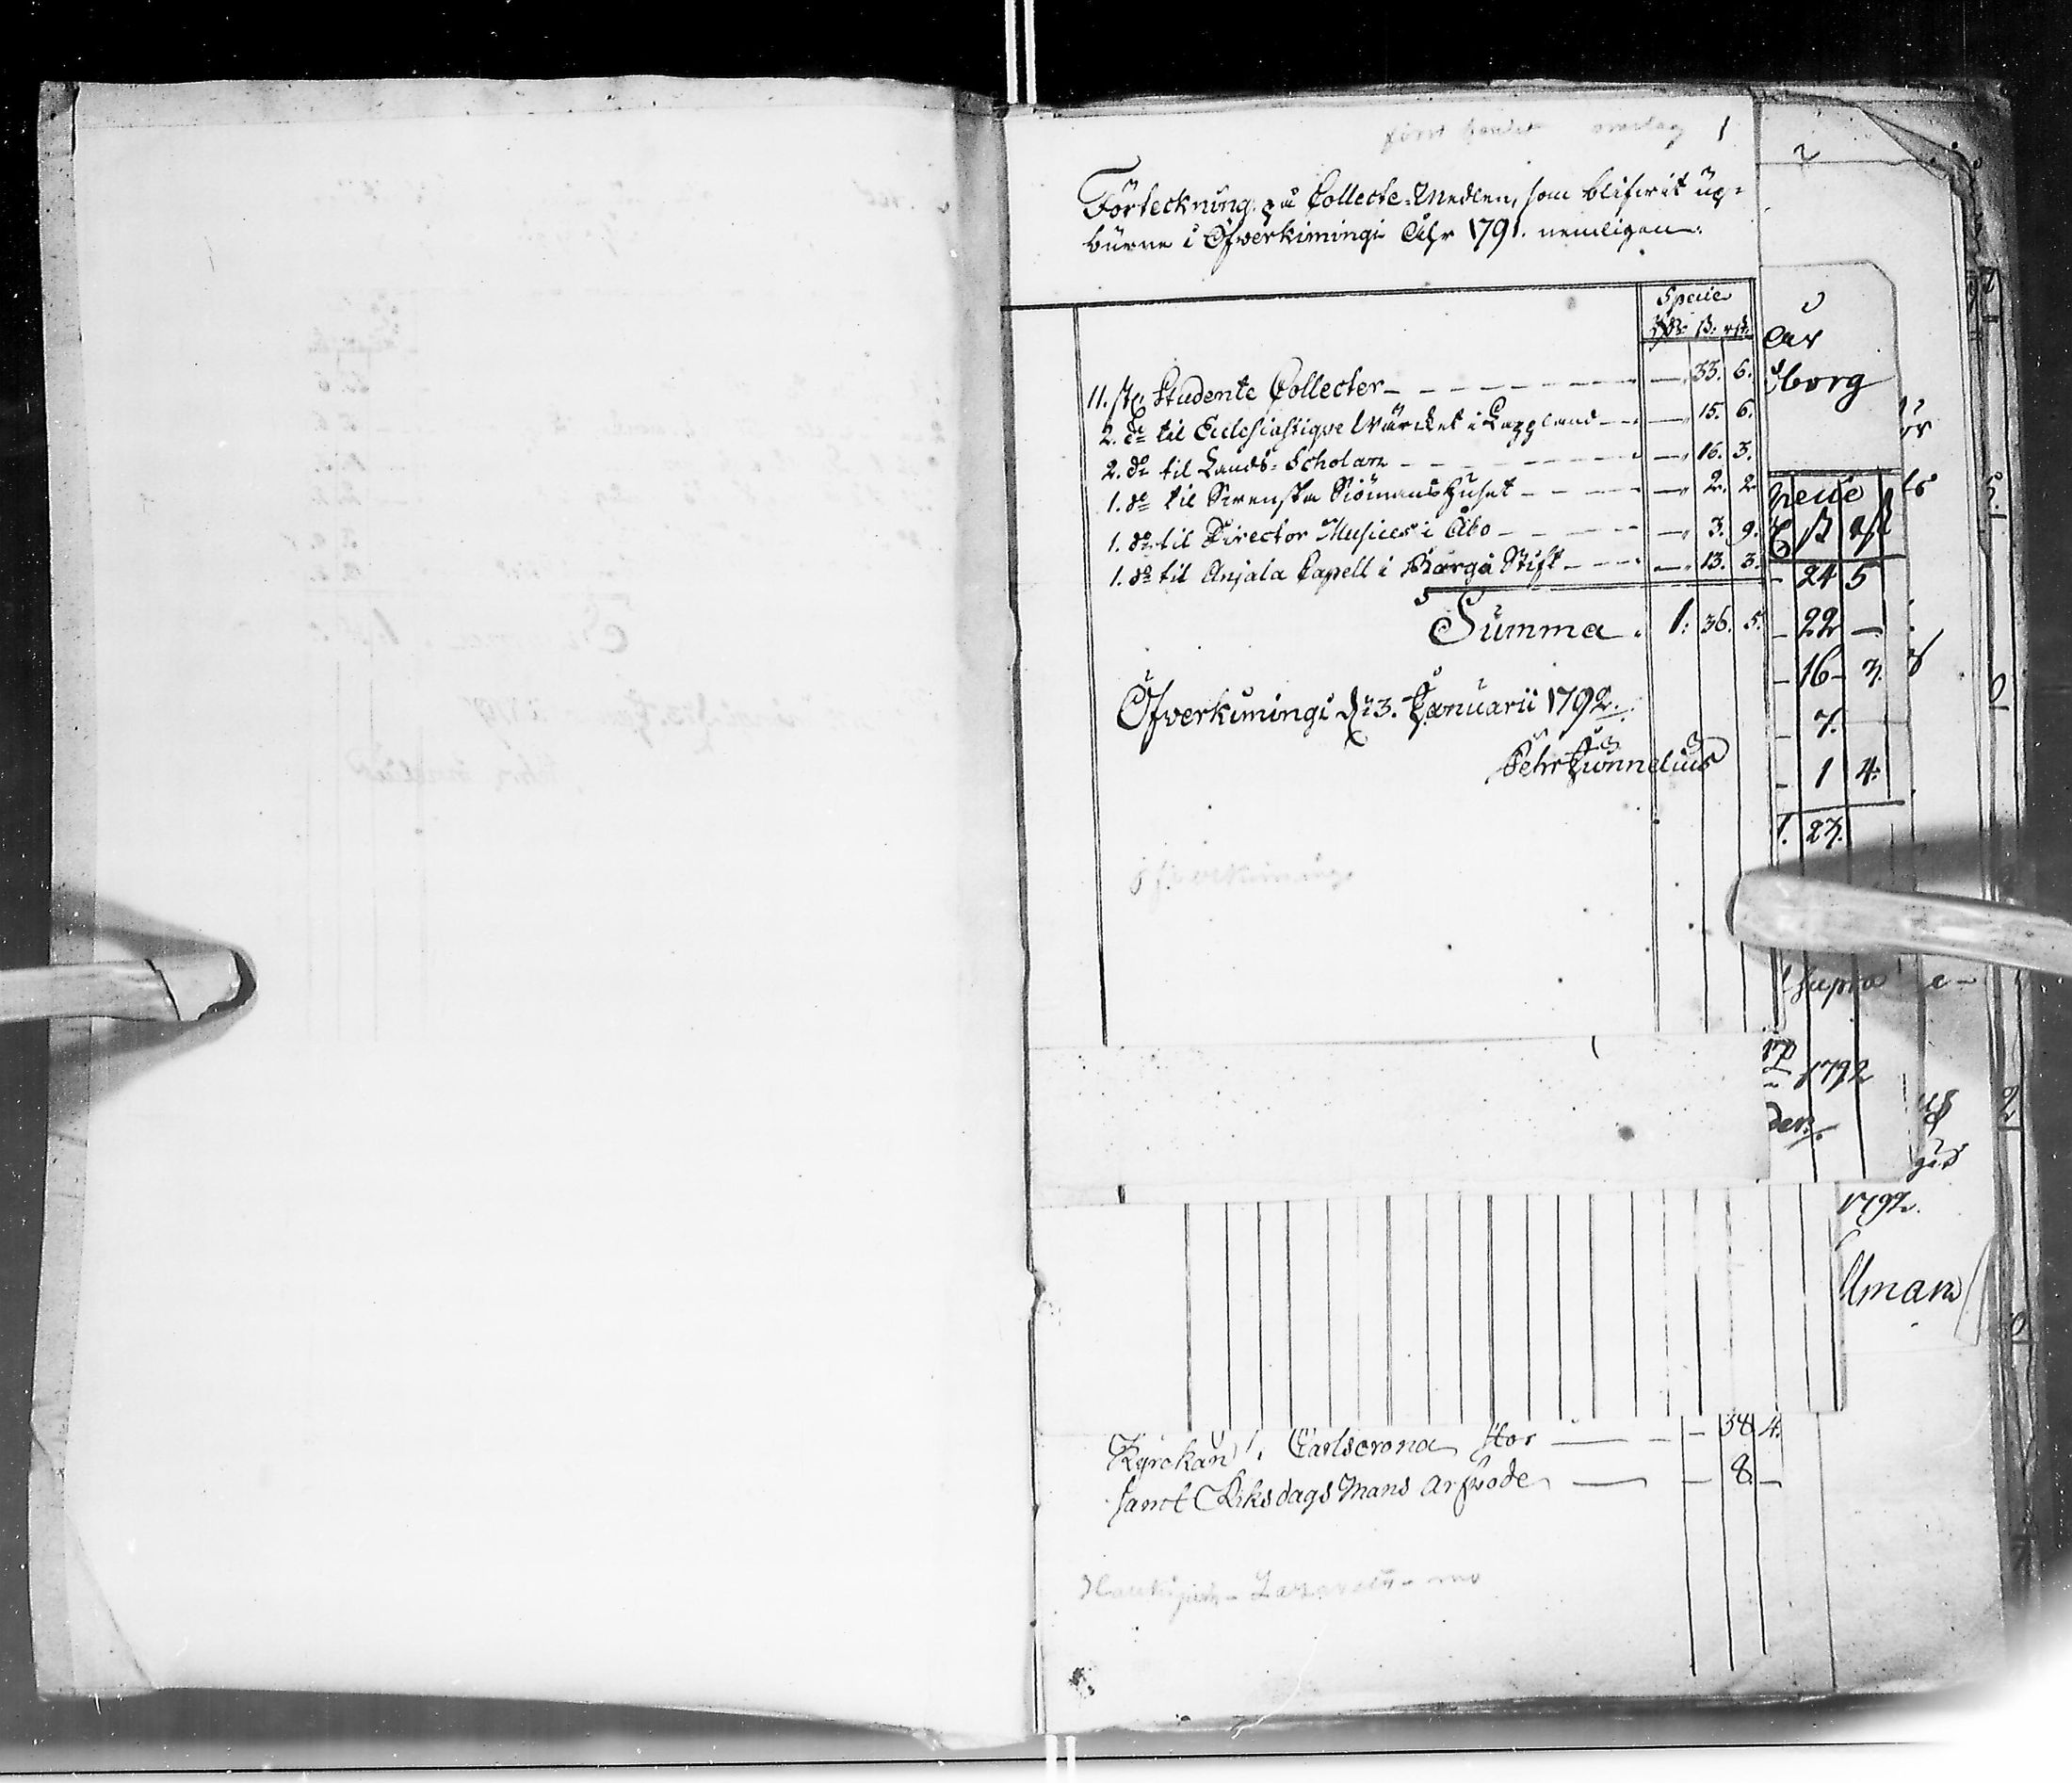 1
Förteckning på Collecte-Medlen, som blifwit up-
burne i Öfwerkimingi Åhr 1791. nemligen.
Specie
Rdr ß: rst:
11. st. Studente Collecter — 33. 6.
2. do til Ecclesiastique Wärcket i Lappland — 15. 6.
2. do til Lands-Scholan — 16. 3.
1. do til Swenska Siömans Huset — 2. 2
1. do til Director Musices i Åbo — 3. 9.
1. do til Anjala Capell i Borgå Stift — 13. 3.
Summa. 1: 36. 5.
Öfwerkimingi d: 3. Januarii 1792.
Pehr Junnelius
öfwerkiminge
Kyrckan i Carlscrona stor — 38 4.
samt Riksdags Mans arfwode — 8. —
2
åar
borg
Specie
ß
24 5
22 —
16 7.
7.
1 4.
1. 27.
supra
1792
der.
1792.
llman